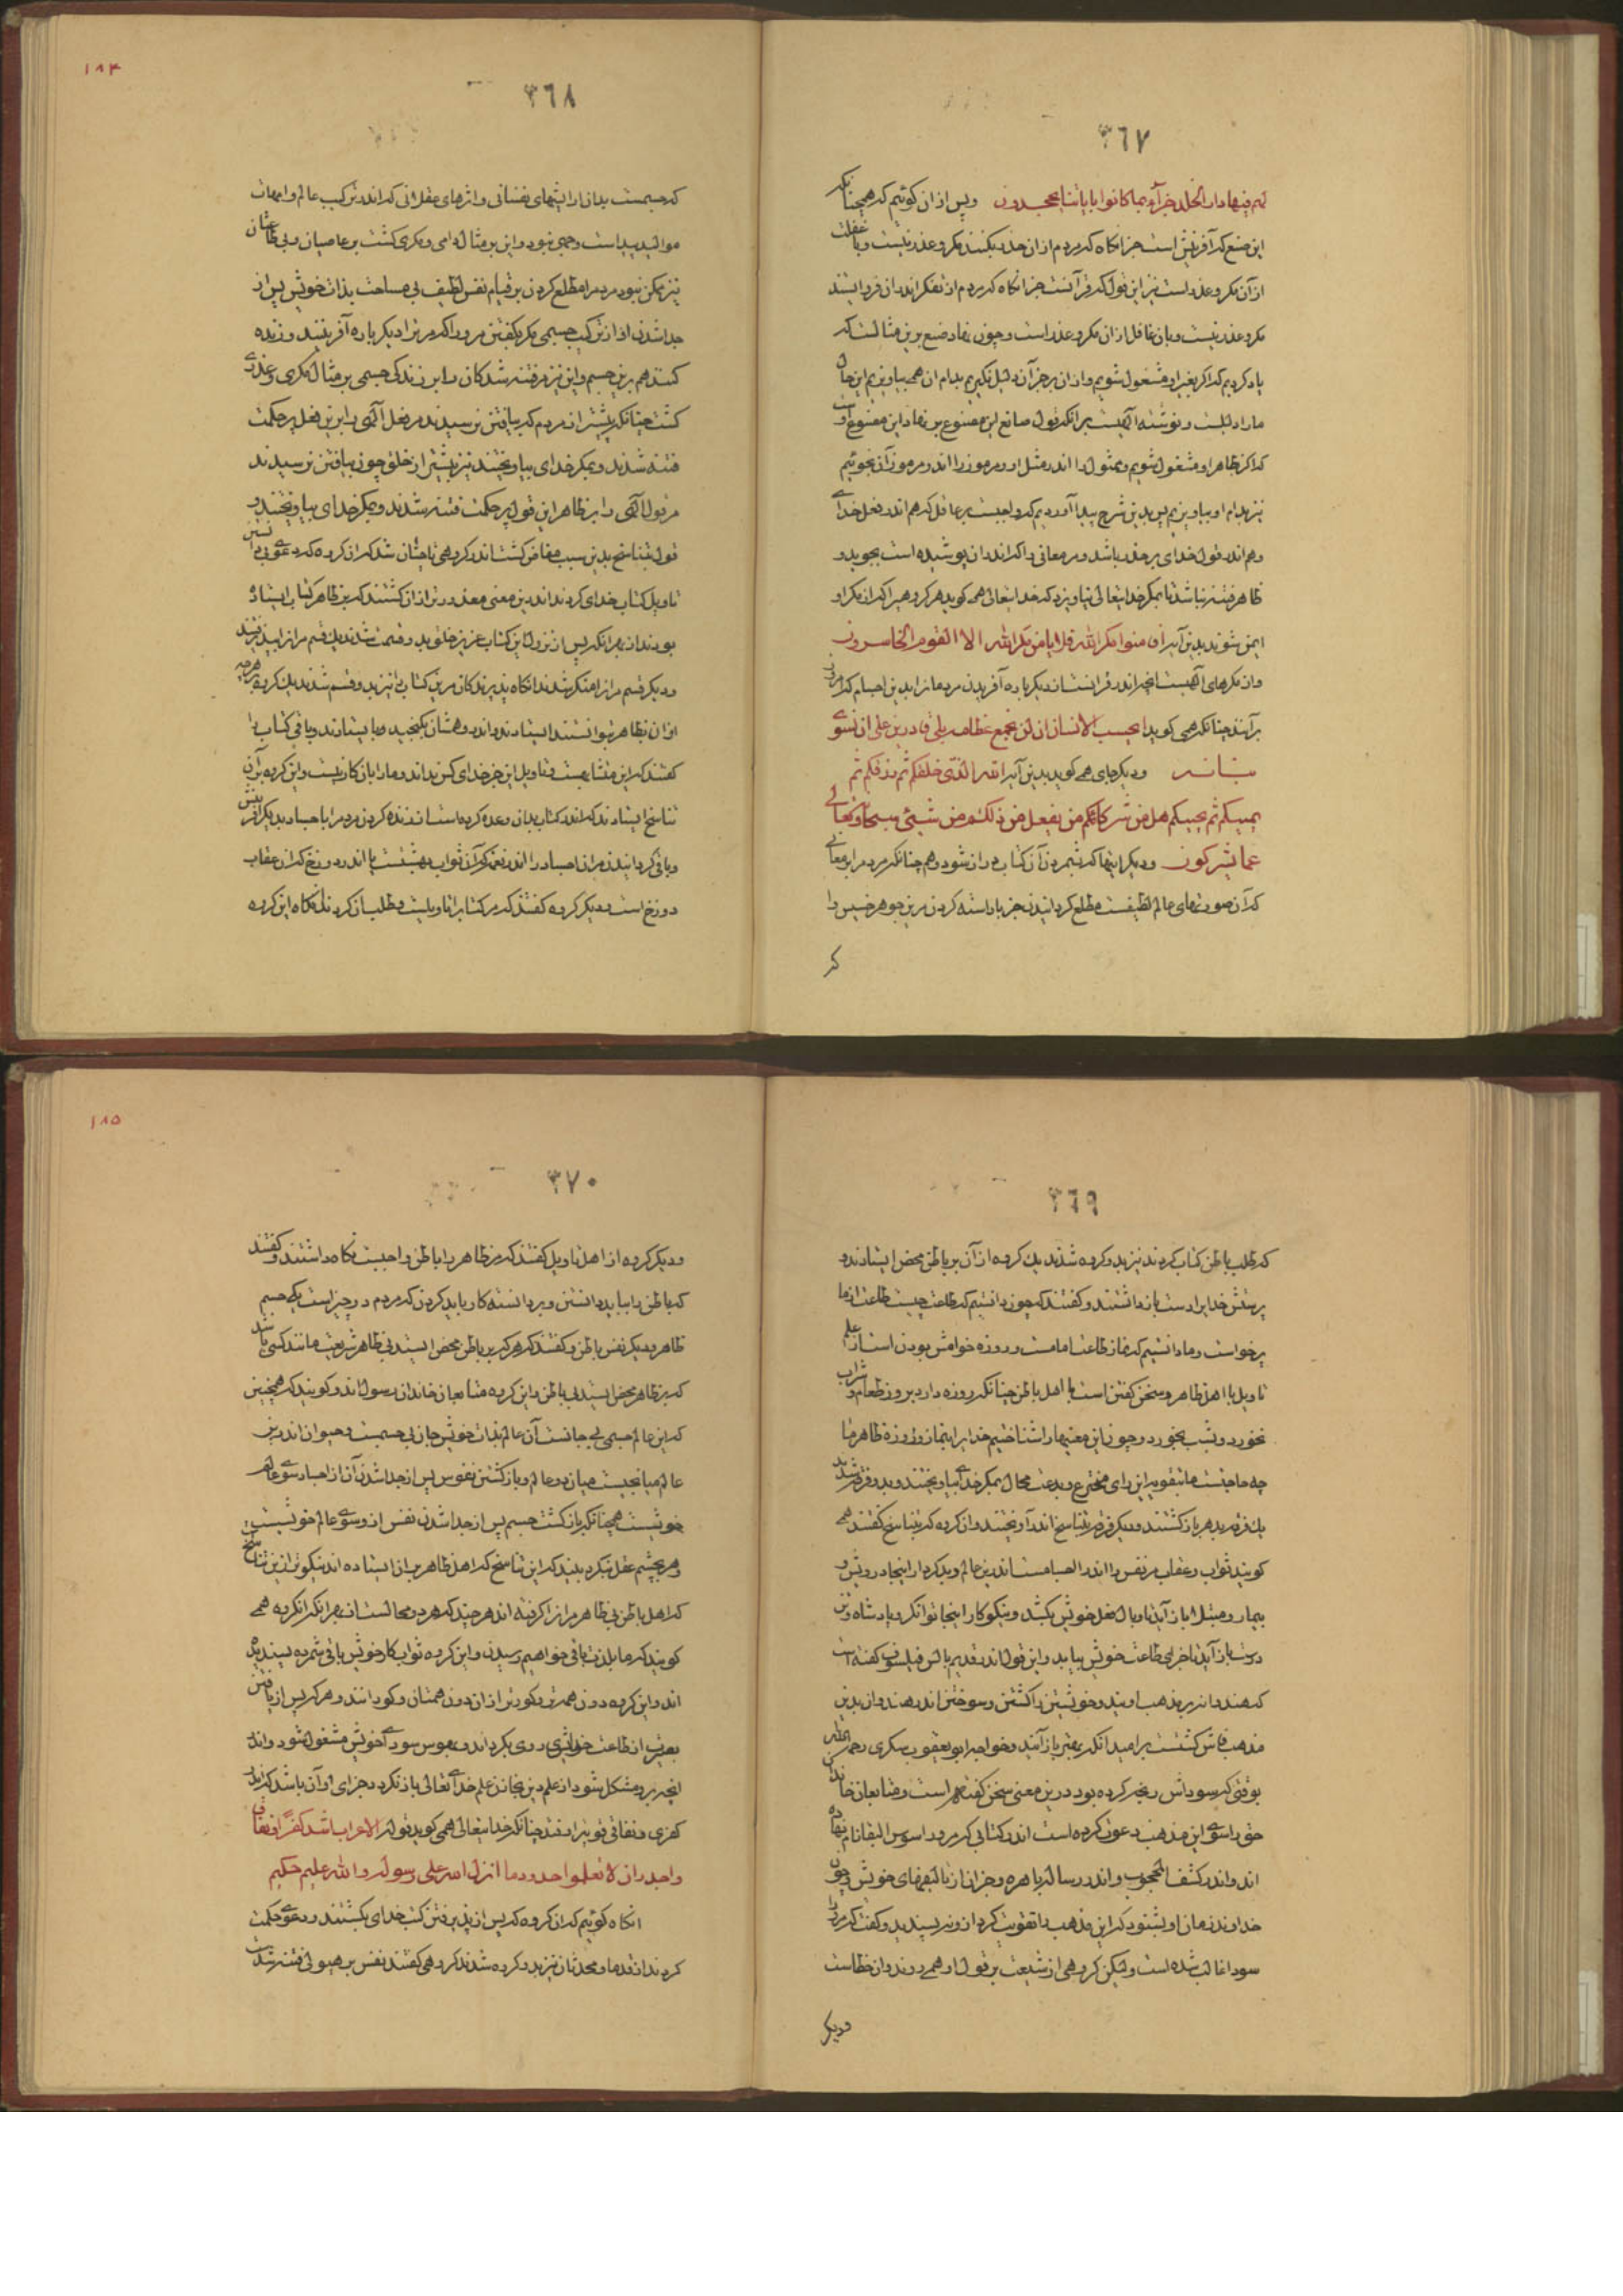 ٣٦٧
لهم فیها دار الخلد جزآء بما کانوا بایاتنا یجحدون وپس از ان کوئیم که همچنانکه
این صنع که آفرینش است جز انکاه که مردم از ان حذر بکنند مکر و عذر نیست و با غفلت
از آن مکر و عذر است نیز این قول که قرآنست جز انکاه که مردم از تفکر اندر ان فرو ایستند
مکر و عذر نیست و بان غافل از ان مکر و عذر است و چون نهاد صنع برین مثالست که
یاد کردیم که اکر بغیر او مشغول شویم و از ان بر جز آن دلیل نکیریم بدام ان همی بیاویزیم این حال
ما را دلیلست و نوشته الهیست بر انکه قول صانع این مصنوع بر نهاد این مصنوع اوست
که اکر بظاهر او مشغول شویم و ممثول را اندر مثل او و مرموز را اندر رموز آن نجوئیم
نیز بدام او بیاویزیم پس بدین شرح پیدا آوردیم که واجبست بر عاقل که هم اندر فعل خدای
وهم اندر قول خدای بر حذر باشد و مر معانی را که اندر ان پوشیده است بجوید و
ظاهر فتنه نباشد تا بمکر خدایتعالی نیاویزد که خدایتعالی همی کوید هر کروهیرا که از مکر او
ایمن شوند بدین آیه افامنوا مکر الله فلا یامن مکر الله الا القوم الخاسرون
وان مکرهای الهیست انچه اندر قرانست از دیکر باره آفریدن مردمانرا بدین اجسام که امروز
برآنند چنانکه همی کوید ایحسب الانسان ان لن نجمع عظامه بلی قادرین علی ان نسوی
بنانه ودیکر جای همی کوید بدین آیه الله الذی خلقکم ثم رزقکم ثم
یمیتکم ثم یحییکم هل من شرکائکم من یفعل من ذلکم من شیئی سبحانه وتعالی
عما یشرکون ودیکر ایتها که شمردن آن کتاب دراز شود وهم چنانکه مردم را بر معانی
که آن صورتهای عالم لطیفست مطلع کردانیدن جز باداشته کردن مرین جوهر خسیس را
که
١٨٤
٣٦٨
که جسمست بدان ارایشهای نفسانی و اثرهای عقلانی که اندر ترکیب عالم و امهات
موالید پیداست وجهی نبود و این بر مثال دامی و مکری کشت بر عاصیان و بی طاعتان
نیز ممکن نبود مردم را مطلع کردن بر قیام نفس لطیف بی مساحت بذات خویش پس از
جدا شدن او از ترکیب جسمی مکر بکفتن مر او را که مر ترا دیکر باره آفرینند و زنده
کنند هم برین جسم و این نیز مر فتنه شدکان را بر زندکی جسمی بر مثال مکری و عذری
کشت چنانکه بیشتر از مردم که بیافتن نرسیدند مر فعل الهی را بر این فعل پر حکمت
فتنه شدند و بمکر خدای بیاویختند نیز بیشتر از خلق چون بیافتن نرسیدند
مر قول الهی را بر ظاهر این قول پر حکمت فتنه شدند و بمکر خدای بیاویختند و
قول تناسخ بدین سبب مفاض کشت اندر کروهی تا چنان شد که ان کروه که دعوی دانستن
تاویل کتاب خدای کردند اندرین معنی معذورتر از ان کشتند که بر ظاهر کتاب ایستاده
بودند از بهر انکه پس از نزول این کتاب عزیز خلق بدو قسمت شدند یک قسم مر انرا بپذیرفتند
ودیکر قسم مر انرا منکر شدند انکاه پذیرندکان مرین کتاب را نیز بدو قسم شدند یک کروه بر هرچه
از ان بظاهر توانستند ایستادند و اندر وهمشان بکنجید و بایستادند و باقی کتاب را
کفتند که این متشابهست و تاویل این جز خدای کس نداند و ما را بان کار نیست و این کروه بر آن
تناسخ ایستادند که اندر کتاب بدان وعده کرده است از زنده کردن مردم را باجساد بدیکر آفرینش
وباقی کردانیدن مران اجساد را اندر نعمت که آن ثواب بهشتست یا اندر دوزخ که ان عقاب
دوزخ است ودیکر کروه کفتند که مر کتاب را تاویلیست و طلب ان کردند انکاه این کروه
٣٦٩
که طلب باطن کتاب کردند نیز بدو کروه شدند یک کروه از آن بر باطن محض ایستادند و
پرستش خدایرا دست بازداشتند و کفتند که چون دانستیم که طاعت چیست طاعت از ما
برخواست و ما دانستیم که نماز طاعت امامست و روزه خوامش بودن است از علم
تاویل با اهل ظاهر و سخن کفتن است با اهل باطن چنانکه روزه دارد بروز طعام و شراب
نخورد و بشب بخورد و چون این معنیها را شناختیم خدایرا بنماز و روزه ظاهر ما
چه حاجتست ما بقوه براین رای مخترع و بدعت محال بمکر خدای بیاویختند و بدو فرقه شدند
یک فرقه بدهر باز کشتند ودیکر فرقه بتناسخ اندر آویختند و ان کروه که بتناسخ کفتند همی
کویند ثواب و عقاب مر نفس را اندر اجسامست اندرین عالم و بدکردار اینجا درویش و
بیمار و مبتلا باز آید تا وبال فعل خویش بکشد و نیکوکار اینجا توانکر و پادشاه و تن
درست باز آید تا جزای طاعت خویش بیابد و این قول اندر قدیم بالس فیلسوف کفته است
که هندوان بر مذهب اویند و خویشتن را کشتن و سوختن اندر هندوان بدین
مذهب فاش کشتست بر امید انکه بهتر باز آمید و خواجه ابو یعقوب سکزی رحمه الله
بوقتی که سوداش رنجه کرده بود درین معنی سخن کفته است و متابعان خاندان
حق را سوی این مذهب دعوت کرده است اندر کتابی که مر او را سوس البقا نام نهاده
اند و اندر کشف المحجوب و اندر رساله باهره و جز ان از تالیفهای خویش و چون
خداوند زمان او بشنود که این مذهب را تقویت کرد از وی نپسندید و کفت که مر او را
سودا غالب شده است ولیکن کروهی از شیعت بر قول او همی روند و ان خطاست
ودیکر
١٨٥
٣٧٠
ودیکر کروه از اهل تاویل کفتند که مر ظاهر را با باطن واجبست نکاه داشتند و کفتند
که باطن را بباید دانستن و بر دانسته کار باید کردن که مردم دو چیز است یکی جسم
ظاهر و دیکر نفس باطن و کفتند که هر که بر باطن محض ایستد بی ظاهر شریعت مانند کسی باشد
که بر ظاهر محض ایستد بی باطن و این کروه متابعان خاندان رسول اند و کویند که همچنین
که این عالم جسمی بی جانست آن عالم بذات خویش جان بی جسمست و حیوان اندرین
عالم میانجیست میان دو عالم و باز کشتن نفوس پس از جدا شدن آن از اجساد سوی عالم
خویشست همچنانکه باز کشت جسم پس از جدا شدن نفس از و سوی عالم خویشست
وهر بچشم عقل بنکرد بیند که این تناسخ که اهل ظاهر بران ایستاده اند نیکوتر از ین تناسخ
که اهل باطن بی ظاهر مر انرا کرفته اند هر چند که هر دو محالست از بهر انکه انکروه همی
کویند که ما بلذت باقی خواهیم رسیدن و این کروه ثواب کار خویش باقی شمرده پسندیده
اند و این کروه دون همت تر و کورتر از ان دون همتان و کورانند و هر که پس از یافتن
بصیرت از طاعت خدای روی بکرداند و بهوس سودای خویش مشغول شود و اندر
انچه برو مشکل شود از علم دین بخازن علم خدای تعالی باز نکردد جزای او آن باشد که اندر
کفری و نفاقی قوی تر افتد چنانکه خدایتعالی همی کوید قوله الاعراب اشد کفرًا و نفاقا
واجدر ان لا یعلموا حدود ما انزل الله علی رسوله والله علیم حکیم
انکاه کوئیم که ان کروه که پس از پذیرفتن کتب خدای بکشتند و دعوی حکمت
کردند از قدما و محدثان نیز بدو کروه شدند کروهی کفتند نفس بر هیولی فتنه شدست